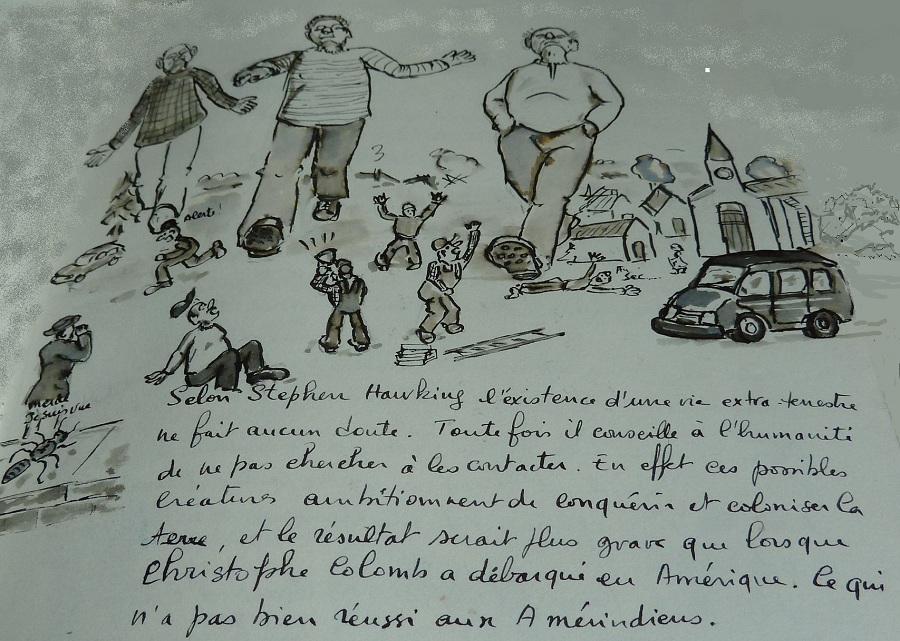 3
Alerte!
Sec...
merde
Je suis vue
Selon Stephen Hawking l'éxistence d'une vie extra-terrestre
ne fait aucun doute. Toutefois il conseille à l'humanité
de ne pas chercher à les contacter. En effet ces possibles
créatures ambitionnent de conquérir et coloniser la
terre, et le résultat serait plus grave que lorsque
Christophe Colomb a débarqué en Amérique. Ce qui
n'a pas bien réussi aux Amérindiens.